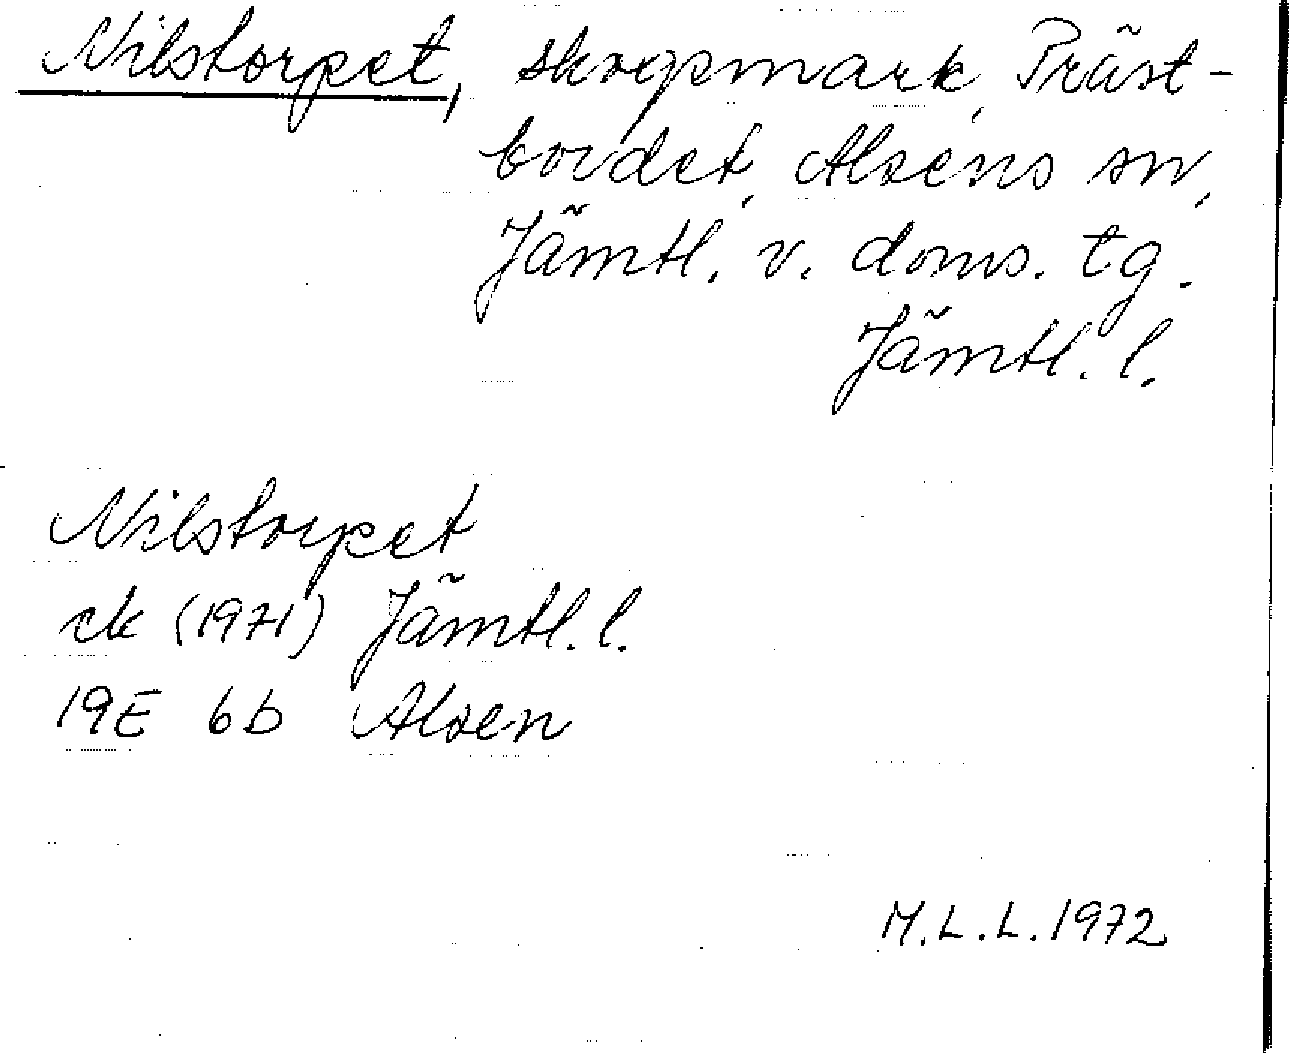 Nilstorpet, skogsmark, Präst-
bordet, Alsens sn,
Jämtl. v. doms. tg.
Jämtl. l.
Nilstorpet
ek (1971) Jämtl. l.
19E 6b Alsen
M.L.L. 1972